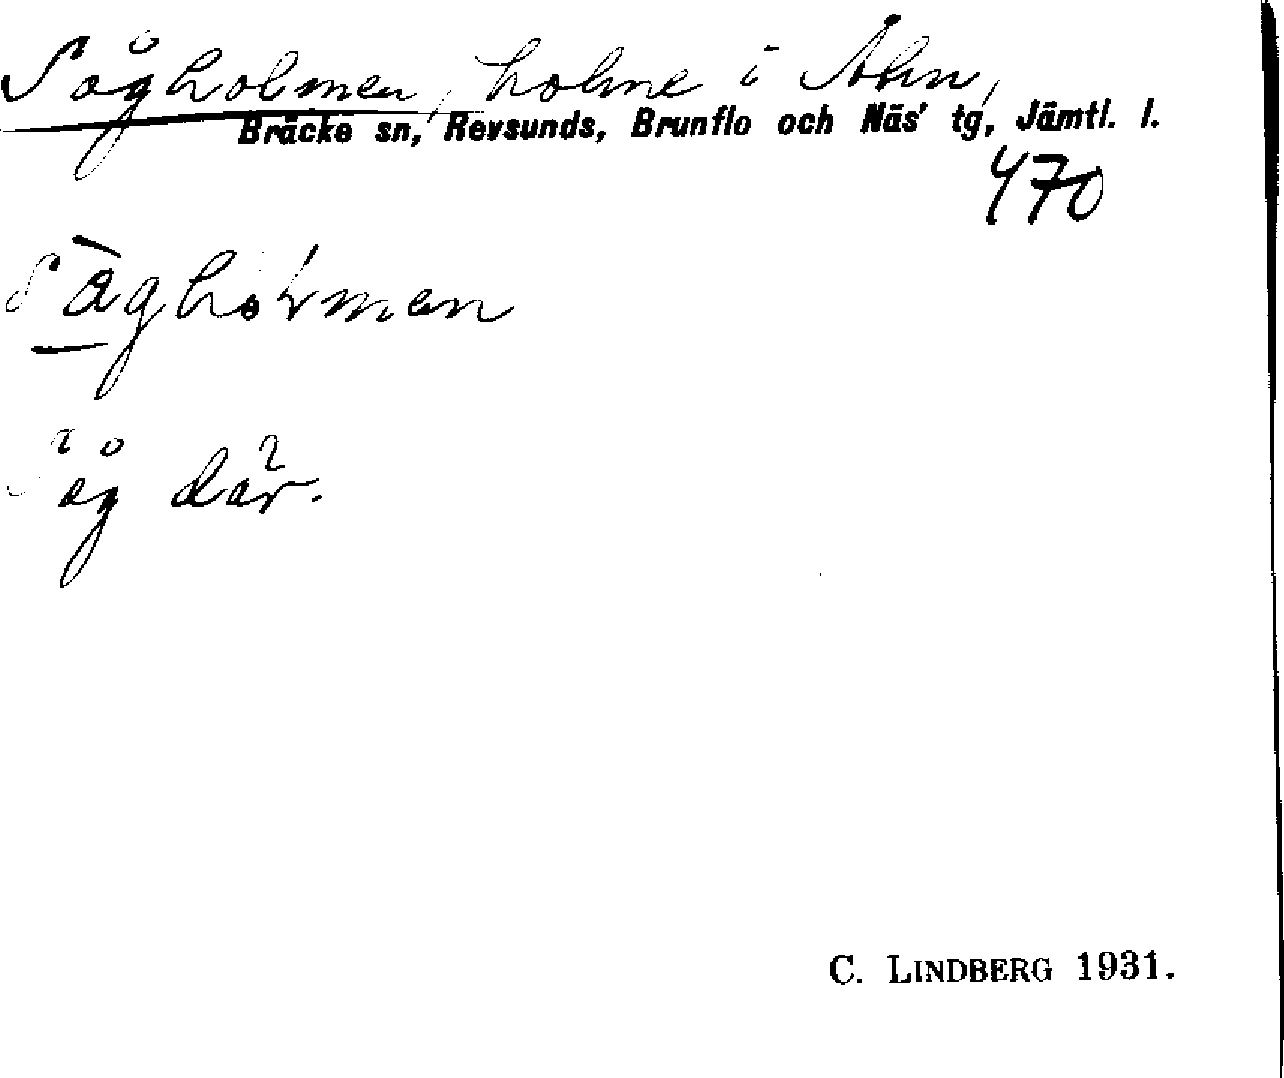 Sågholmen, holme i Åhn,
Bräcke sn, Revsunds, Brunflo och Näs' tg, Jämtl. l.
470
såg där.
C. LINDBERG 1931.